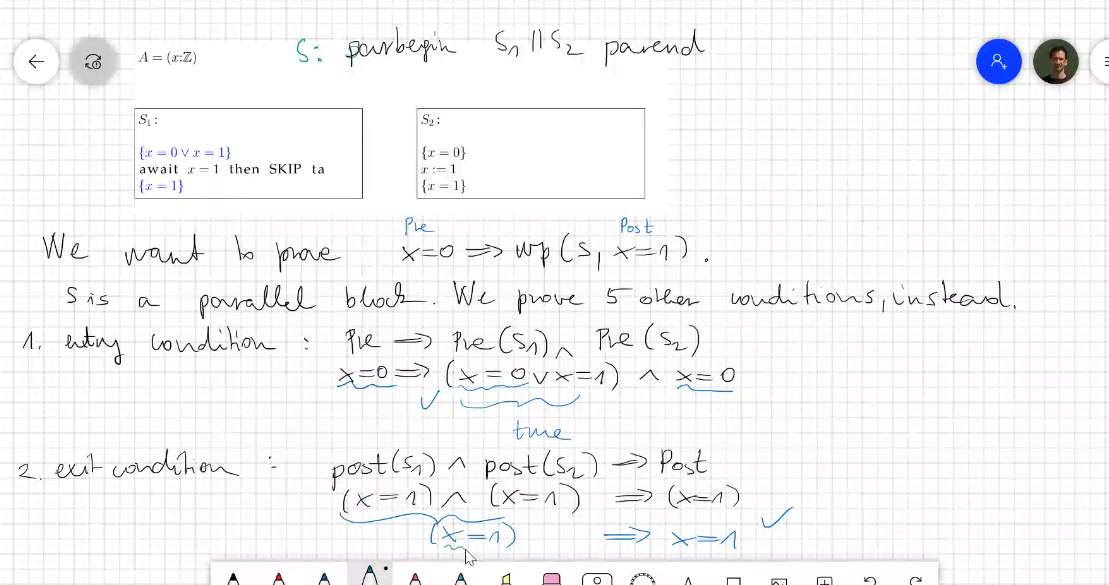 S: parbegin S1 || S2 parend
A = (x:ℤ)
S1 :
{x = 0 ∨ x = 1}
await x = 1 then SKIP ta
{x = 1}
S2 :
{x = 0}
x := 1
{x = 1}
Pre Post
We want to prove x=0 ⟹ wp(S, x=1).
S is a parallel block. We prove 5 other conditions, instead.
1. entry condition : Pre ⟹ Pre(S1) ∧ Pre(S2)
x=0 ⟹ (x=0 ∨ x=1) ∧ x=0
✓
true
2. exit condition : post(S1) ∧ post(S2) ⟹ Post
(x=1) ∧ (x=1) ⟹ (x=1)
(x=1) ⟹ x=1 ✓